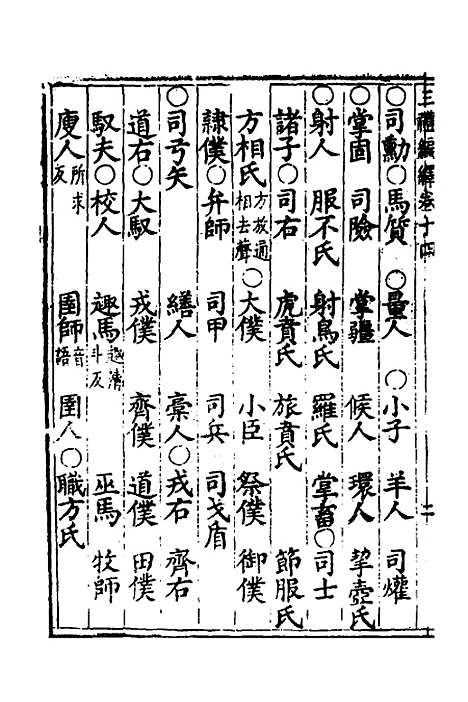 三禮編繹卷十四 二
○司勳○馬質 ○量人 ○小子 羊人 司爟
○掌固 司險 掌疆 候人 環人 挈壺氏
○射人 服不氏 射鳥氏 羅氏 掌畜○司士
諸子○司右 虎賁氏 旅賁氏 節服氏
方相氏方放過相去聲○大僕 小臣 祭僕 御僕
隸僕○弁師 司甲 司兵 司戈盾
○司弓矢 繕人 槀人○戎右 齊右
道右○大馭 戎僕 齊僕 道僕 田僕
馭夫○校人 趣馬趣清斗反 巫馬 牧師
廋人所求反 圉師音語 圉人○職方氏